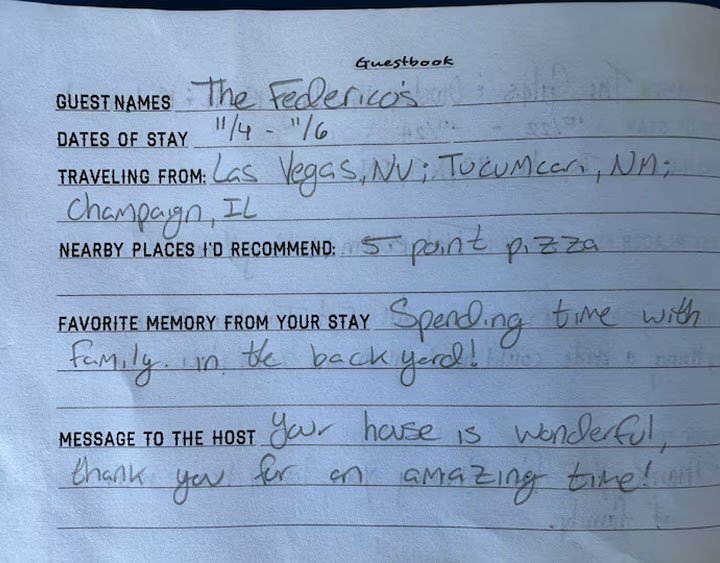 Guestbook
GUEST NAMES The Federico's
DATES OF STAY 11/4 - 11/6
TRAVELING FROM: Las Vegas, NV; Tucumcari, NM;
Champaign, IL
NEARBY PLACES I'D RECOMMEND: 5 point pizza
FAVORITE MEMORY FROM YOUR STAY Spending time with
family. in the back yard!
MESSAGE TO THE HOST Your house is wonderful,
thank you for an amazing time!